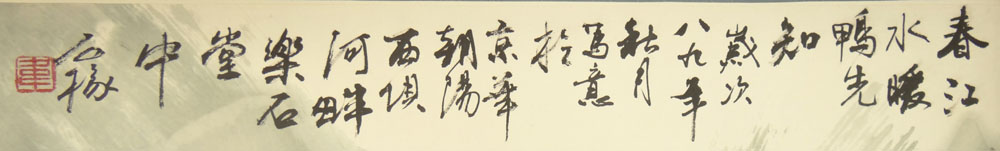 春江
水暖
鴨先
知
歲次
八九年
秋月
寫意
於
京華
朝陽
西垻
河畔
樂石
堂
中